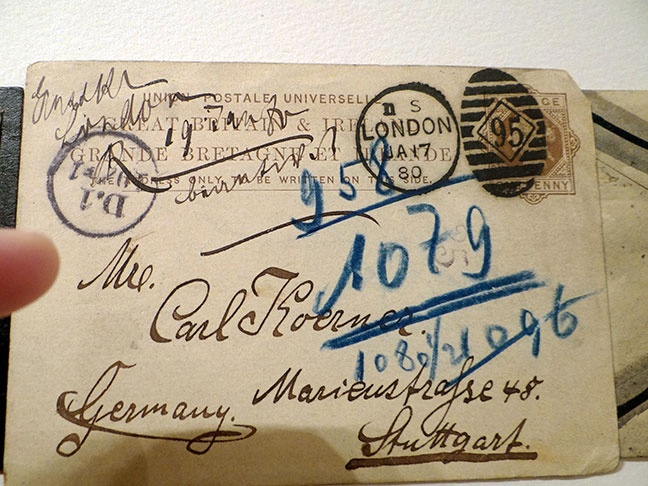 London
19 Jan 80
UNION POSTALE UNIVERSELLE
GREAT BRITAIN & IRELAND
GRANDE BRETAGNE ET IRLANDE
THE ADDRESS ONLY TO BE WRITTEN ON THIS SIDE.
PENNY
S
LONDON
JA 17
80
95
D.1
958
1079
1096
Mr.
Carl Koerner.
Marienstraſse 48.
Germany.
Stuttgart.